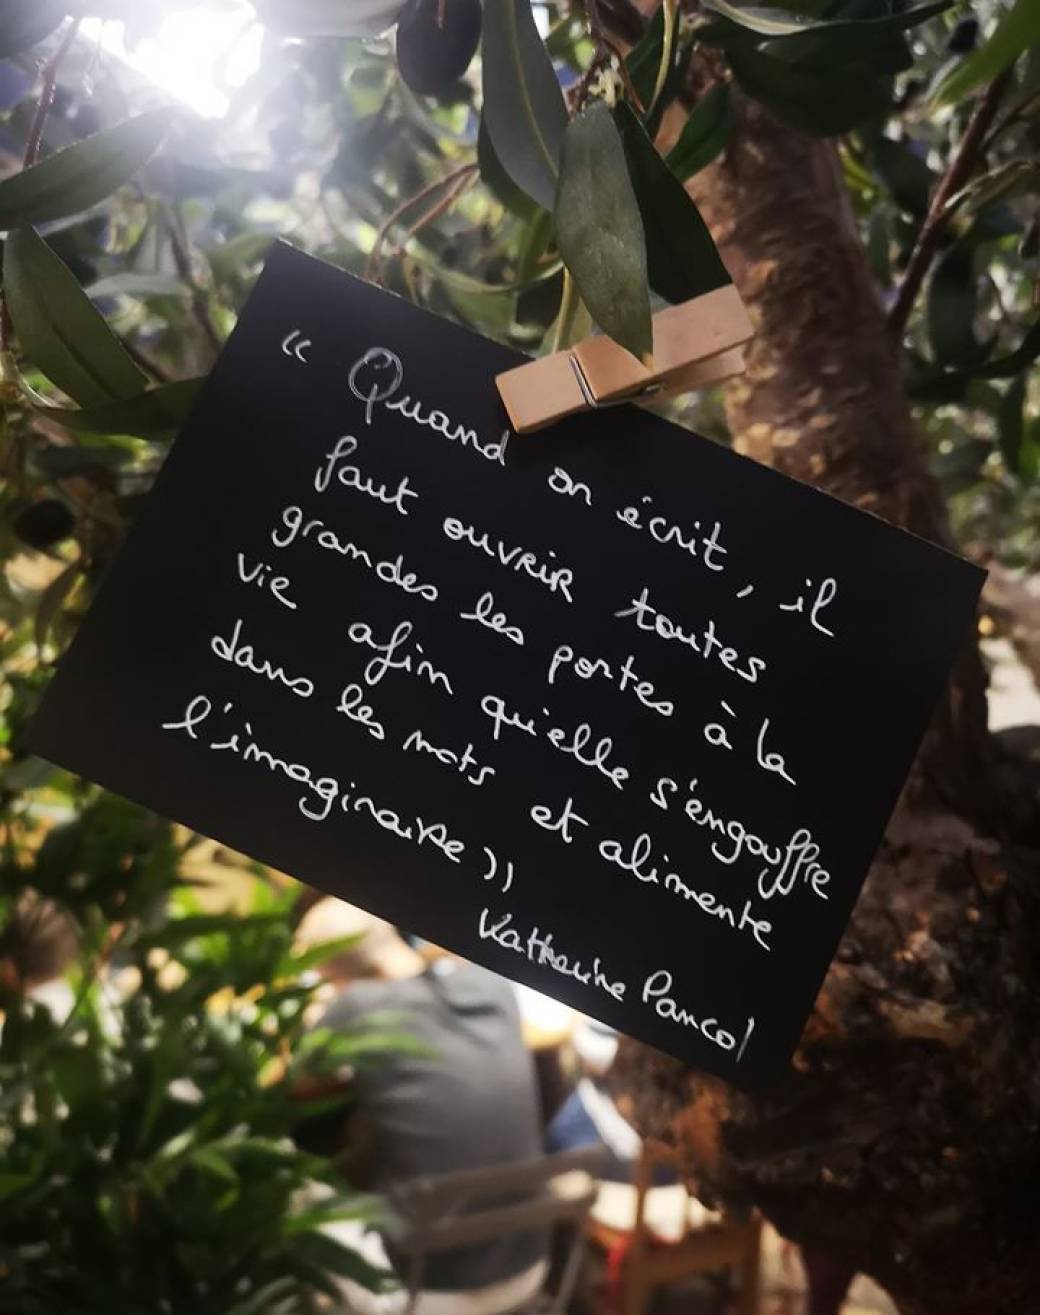 « Quand on écrit, il
faut ouvrir toutes
grandes les portes à la
vie afin qu'elle s'engouffre
dans les mots et alimente
l'imaginaire »
Katherine Pancol